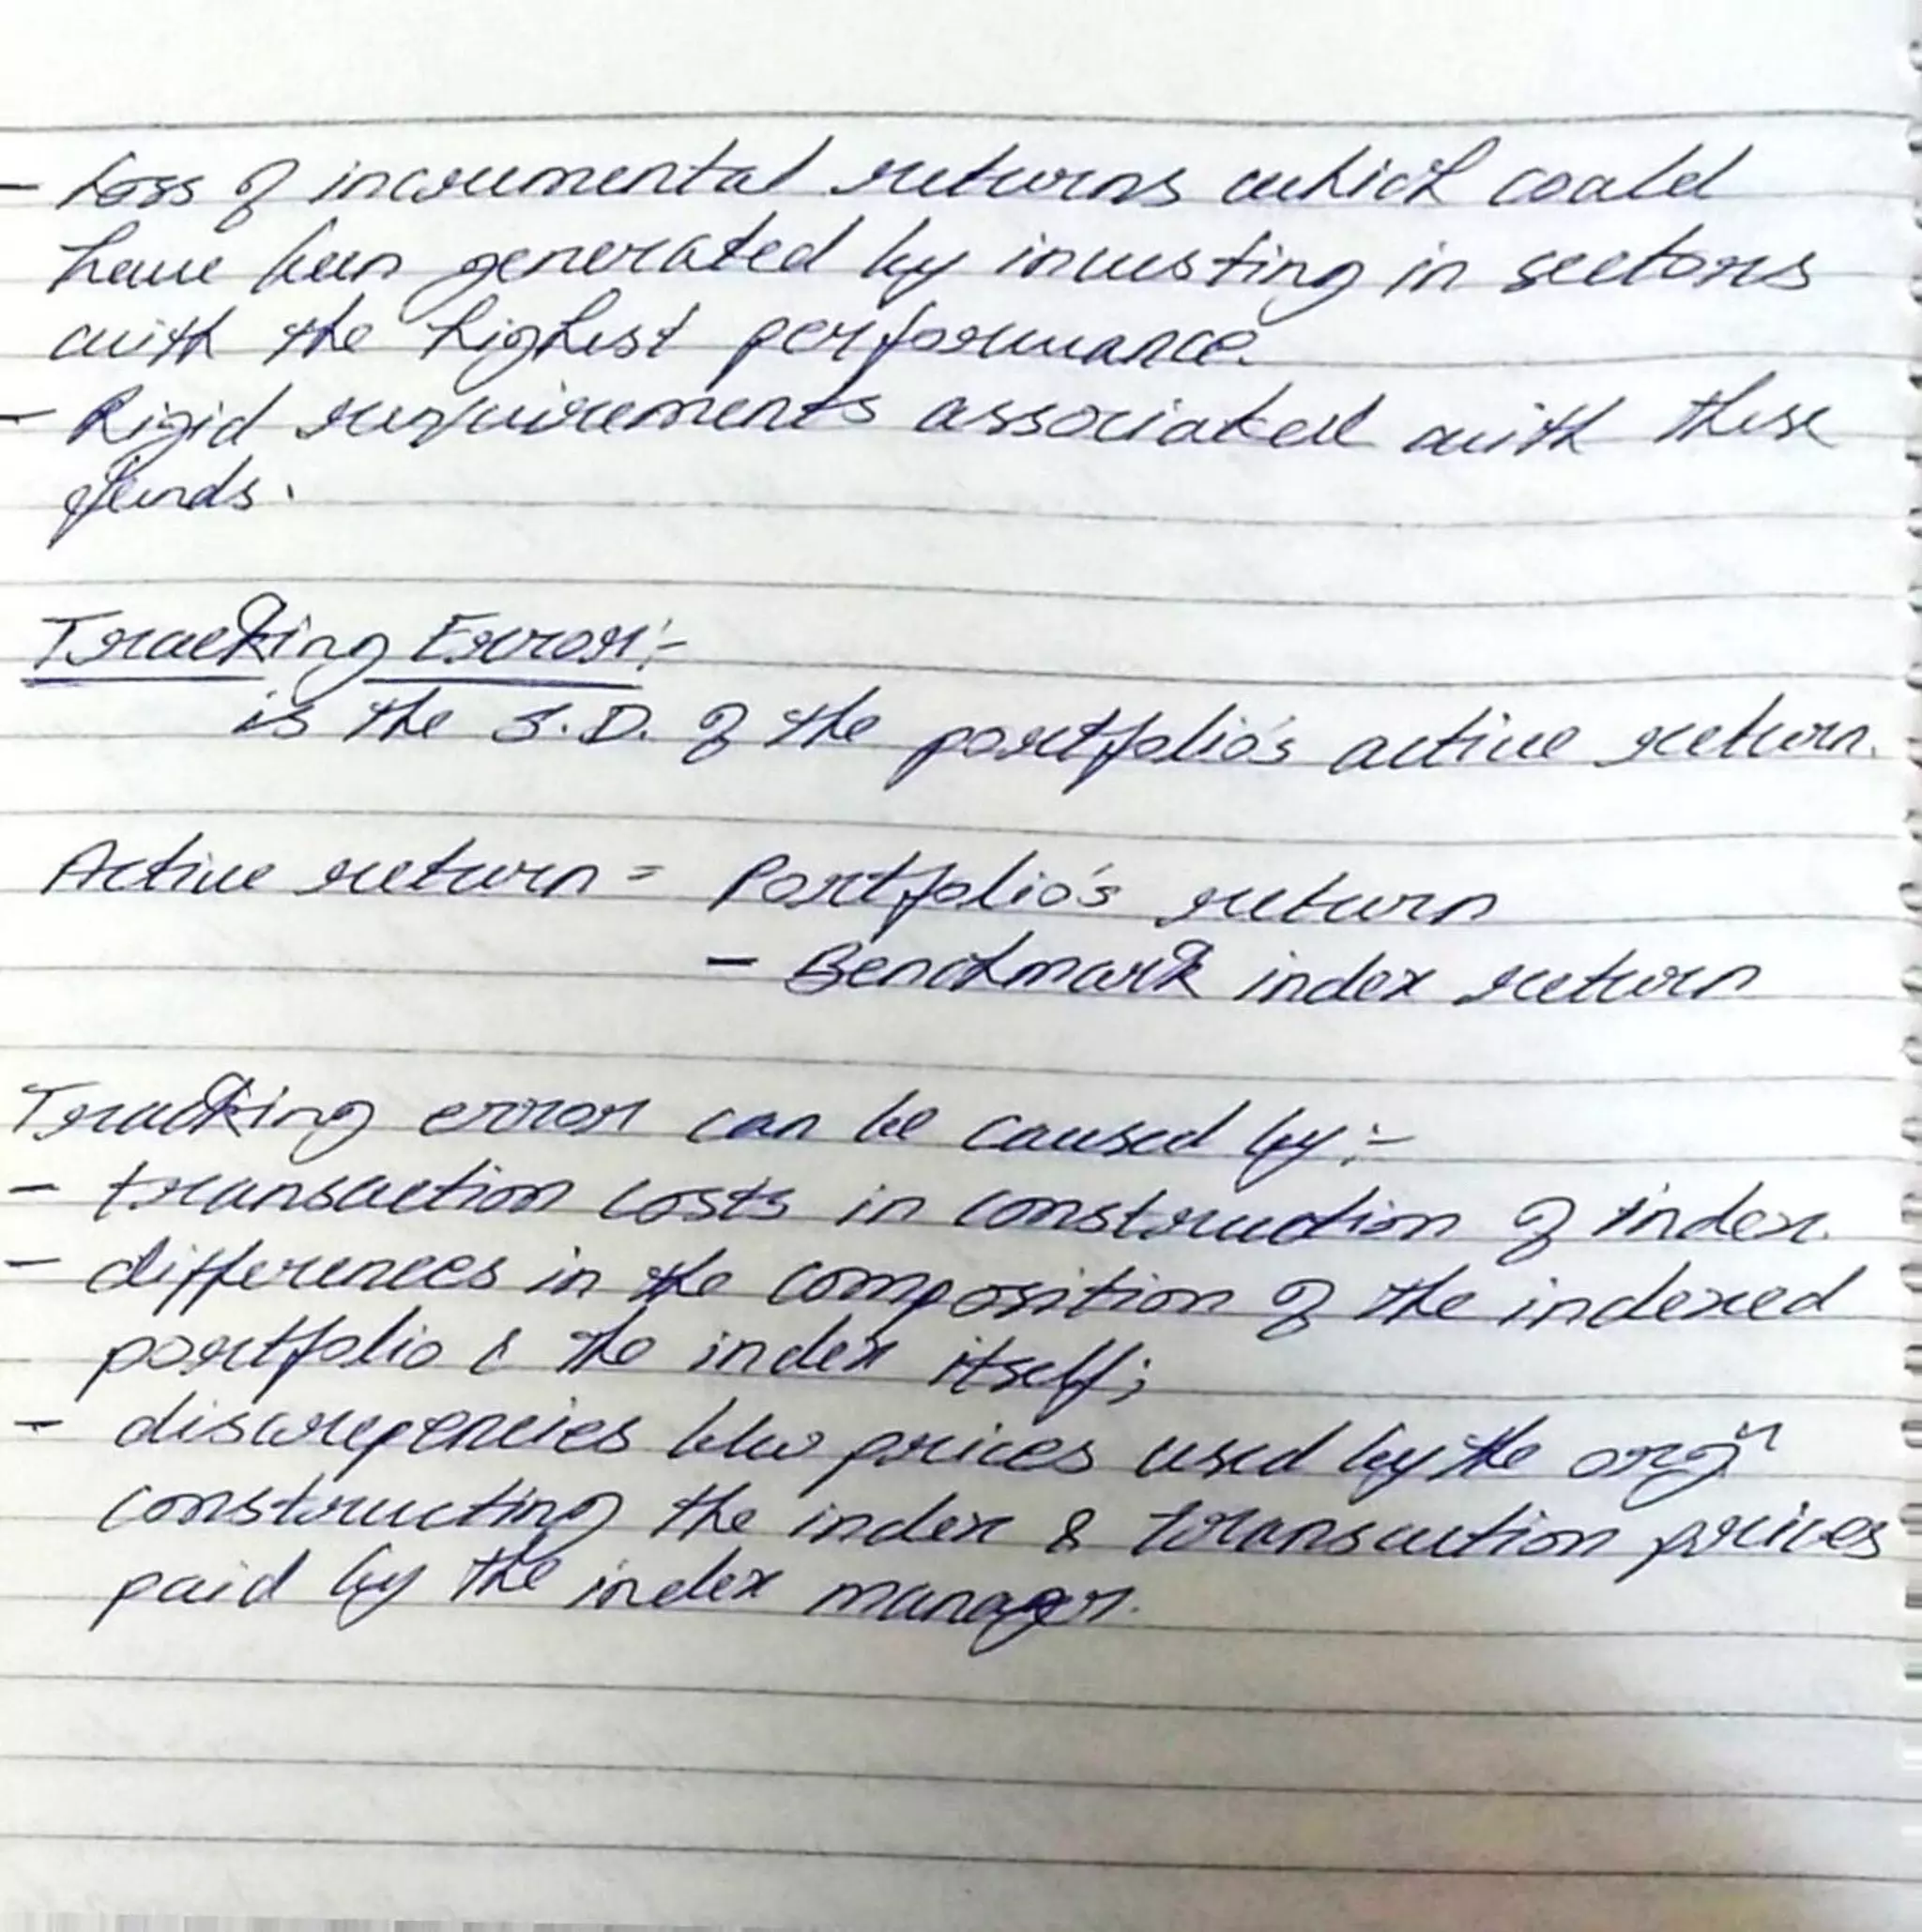 - Loss of incremental returns which could
have been generated by investing in sectors
with the highest performance.
- Rigid requirements associated with these
funds.
Tracking Error:-
is the S.D. of the portfolio's active return.
Active return = Portfolio's return
- Benchmark index return
Tracking error can be caused by:-
- transaction costs in construction of index.
- differences in the composition of the indexed
portfolio & the index itself;
- discrepencies b/w prices used by the orgⁿ
constructing the index & transaction prices
paid by the index manager.